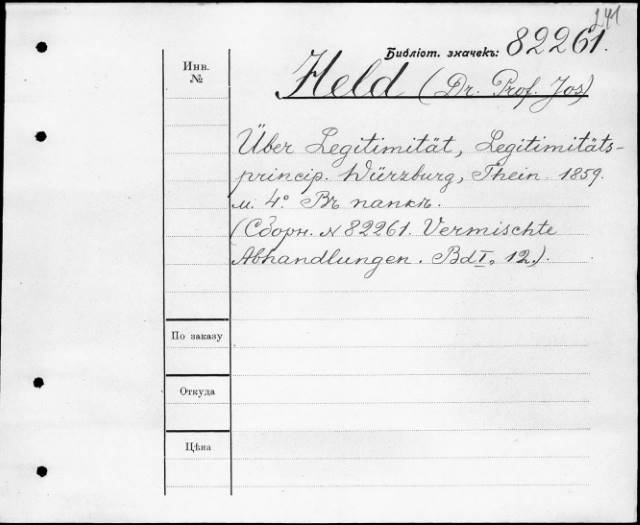 241
Библіот. значекъ: 82261.
Инв.
№
Held (Dr. Prof. Jos)
Über Legitimität, Legitimitäts-
princip. Würzburg, Thein. 1859.
м. 4° Въ папкѣ.
(Сборн. № 82261. Vermischte
Abhandlungen. Bd I, 12.).
По заказу
Откуда
Цѣна